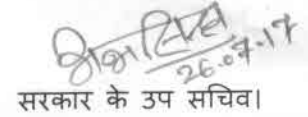 26.07.17
सरकार के उप सचिव।